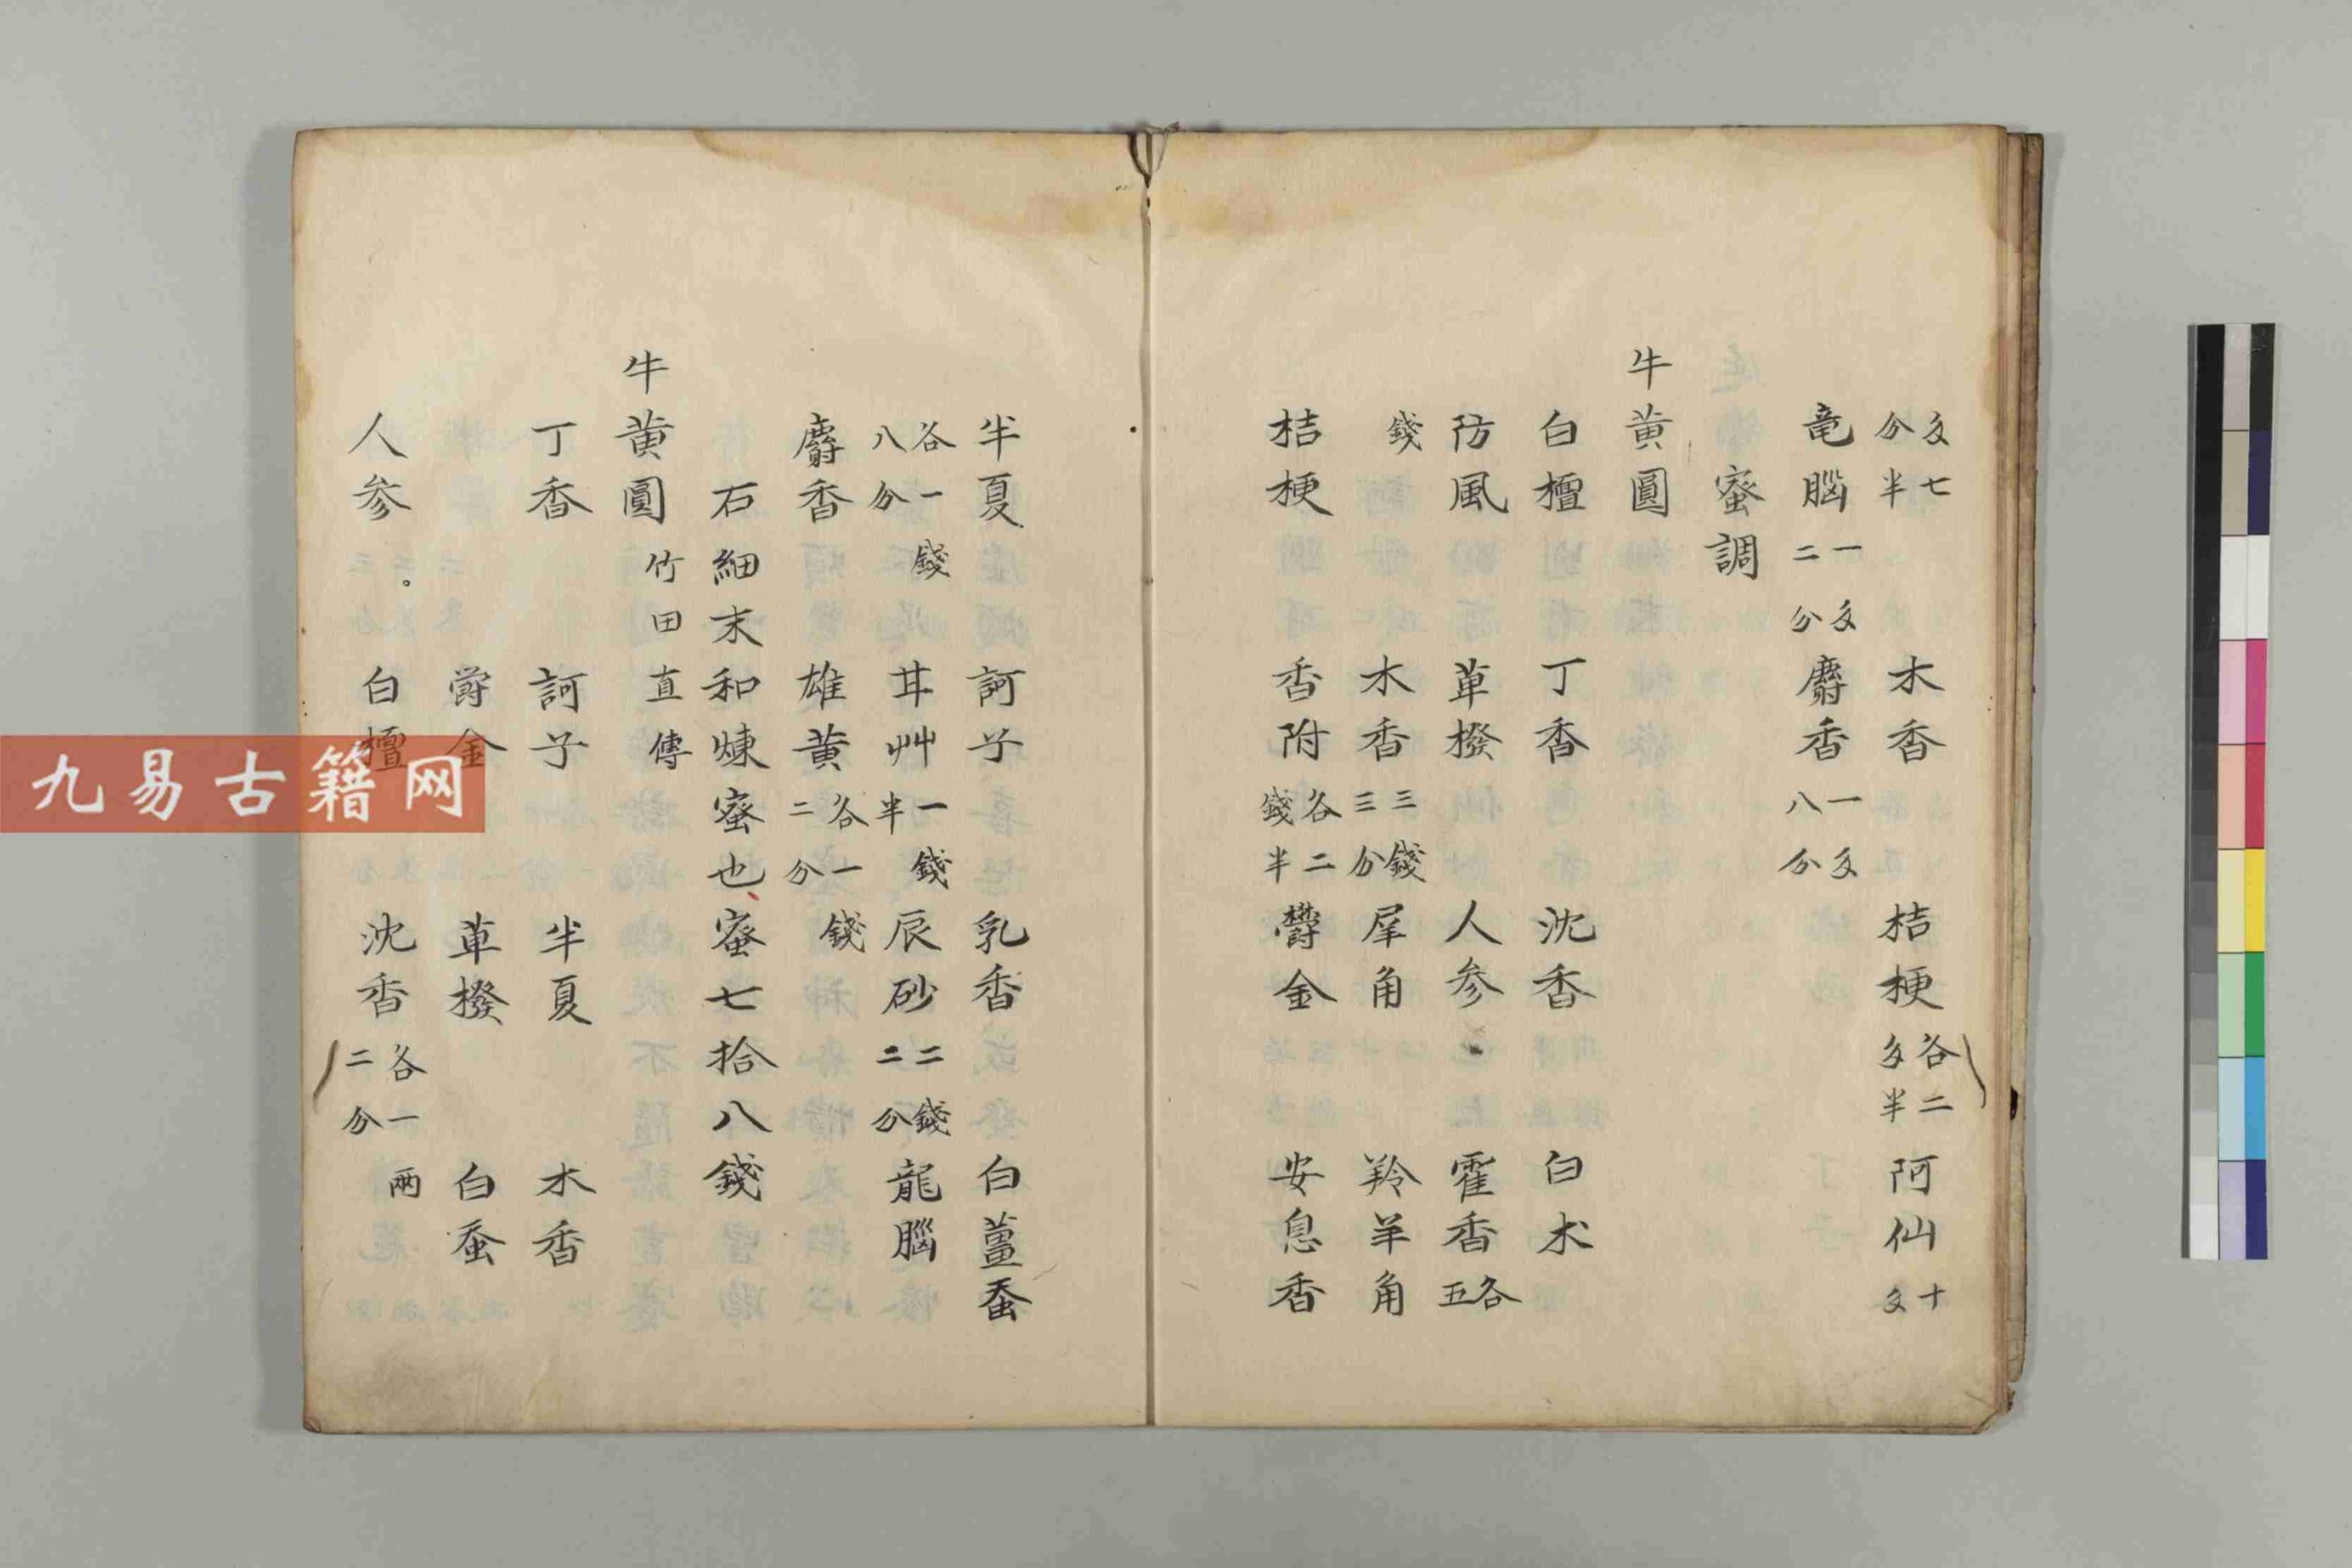 文七分半 木香 桔梗各二文半 阿仙十文
竜腦一文二分 麝香一文八分
蜜調
牛黄圓
白檀 丁香 沈香 白朮
防風 蓽撥 人参 霍香各五
錢 木香三錢三分 犀角 羚羊角
桔梗 香附各二錢半 欝金 安息香
半夏 訶子 乳香 白薑蚕
各一錢八分 甘艸一錢半 辰砂二錢二分 龍腦
麝香 雄黄各一錢二分
石細末和煉蜜也蜜七拾八錢
牛黄圓竹田直傳
丁香 訶子 半夏 木香
欝金 蓽撥 白蚕
人参 白檀 沈香各一兩二分
九易古籍网